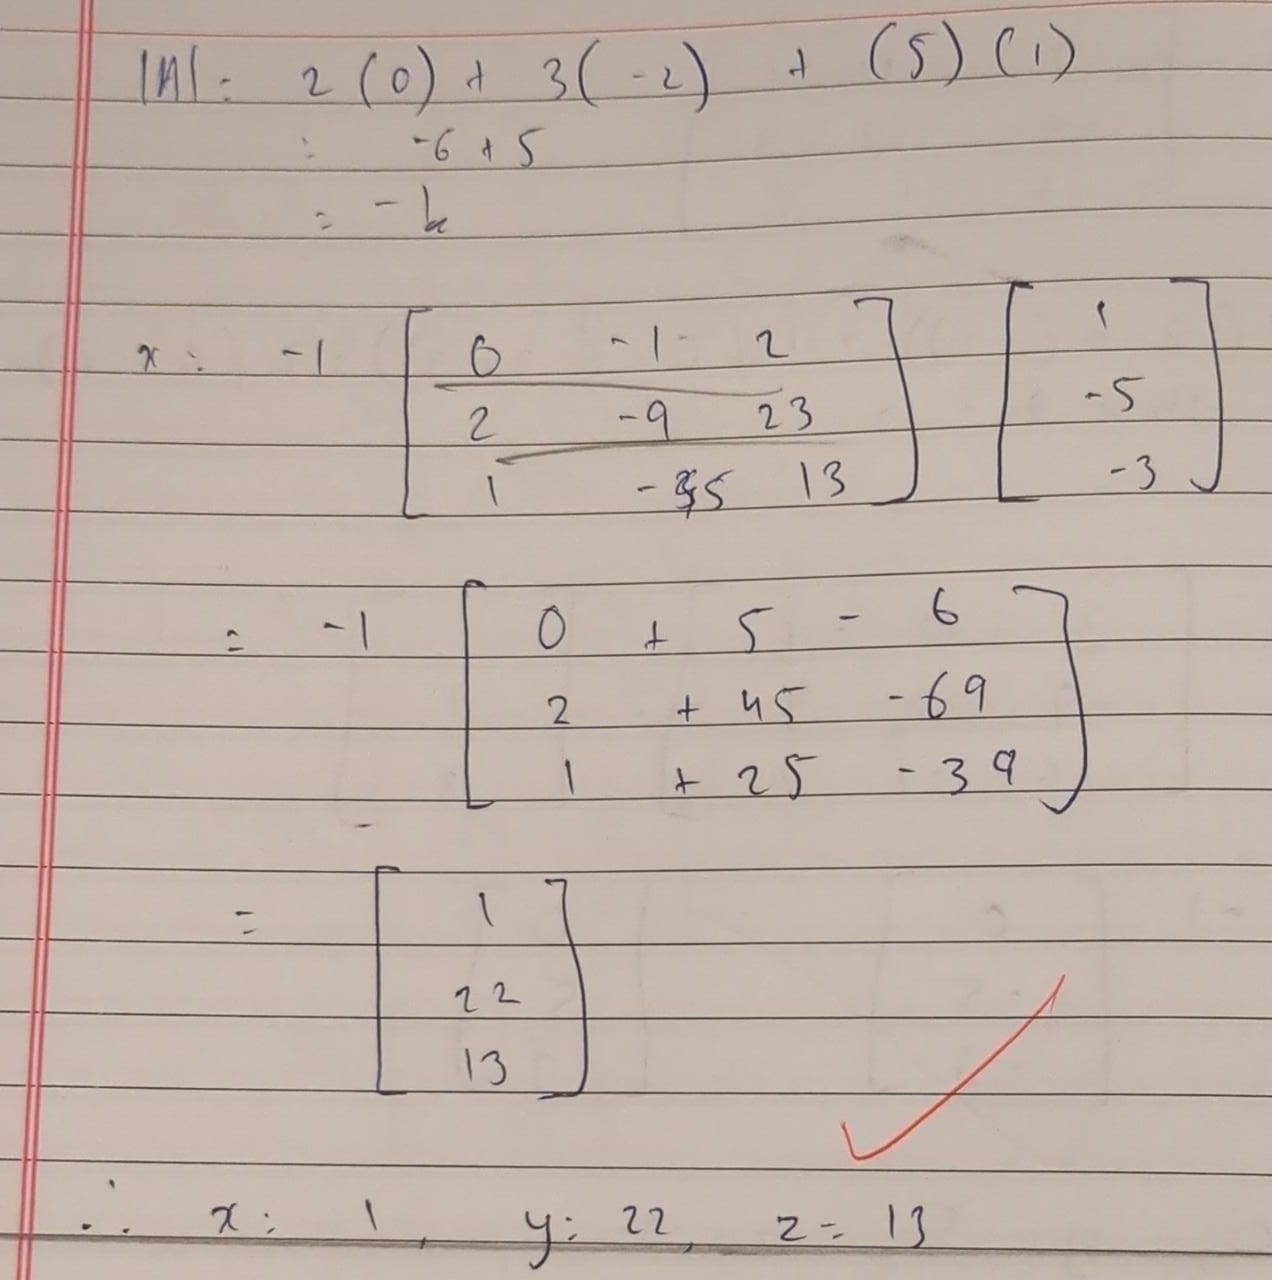 |A| = 2 (0) + 3(-2) + (5) (1)
= -6 + 5
= -1
x = -1 [ 0 -1 2 ] [ 1 ]
[ 2 -9 23 ] [ -5 ]
[ 1 -5 13 ] [ -3 ]
= -1 [ 0 + 5 - 6 ]
[ 2 + 45 - 69 ]
[ 1 + 25 - 39 ]
= [ 1 ]
[ 22 ]
[ 13 ]
∴ x = 1, y = 22, z = 13